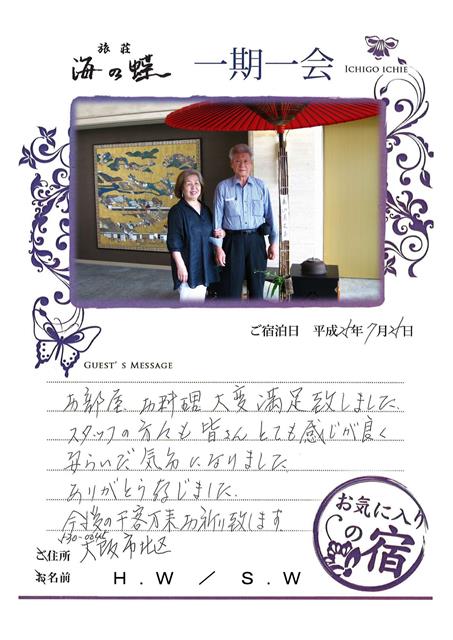 旅荘
海の蝶
一期一会
ICHIGO ICHIE
ご宿泊日 平成26年7月21日
GUEST'S MESSAGE
お部屋 お料理 大変満足致しました。
スタッフの方々も皆さんとても感じが良く
安らいだ気分になりました。
ありがとう存じました。
今後の千客万来お祈り致します。
ご住所 大阪市北区
お名前 H.W / S.W
お気に入り
の宿